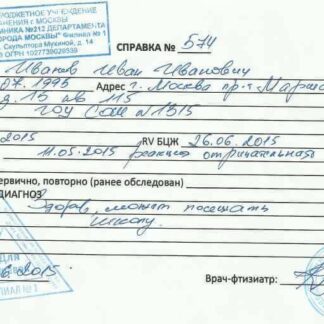 БЮДЖЕТНОЕ УЧРЕЖДЕНИЕ
АНЕНИЯ г. МОСКВЫ
ИНИКА №212 ДЕПАРТАМЕНТА
ГОРОДА МОСКВЫ" Филиал № 1
Скульптора Мухиной, д. 14
ОГРН 1027739029539
СПРАВКА № 574
Иванов Иван Иванович
07.1995 Адрес г. Москва пр-т Марша
д. 13 кв 115
ГОУ СОШ №1315
2015 RV БЦЖ 26.06.2015
11.05.2015 реакция отрицательная
ервично, повторно (ранее обследован)
ДИАГНОЗ
Здоров, может посещать
школу.
2015
ДЛЯ
ФИЛИАЛ № 1
Врач-фтизиатр: